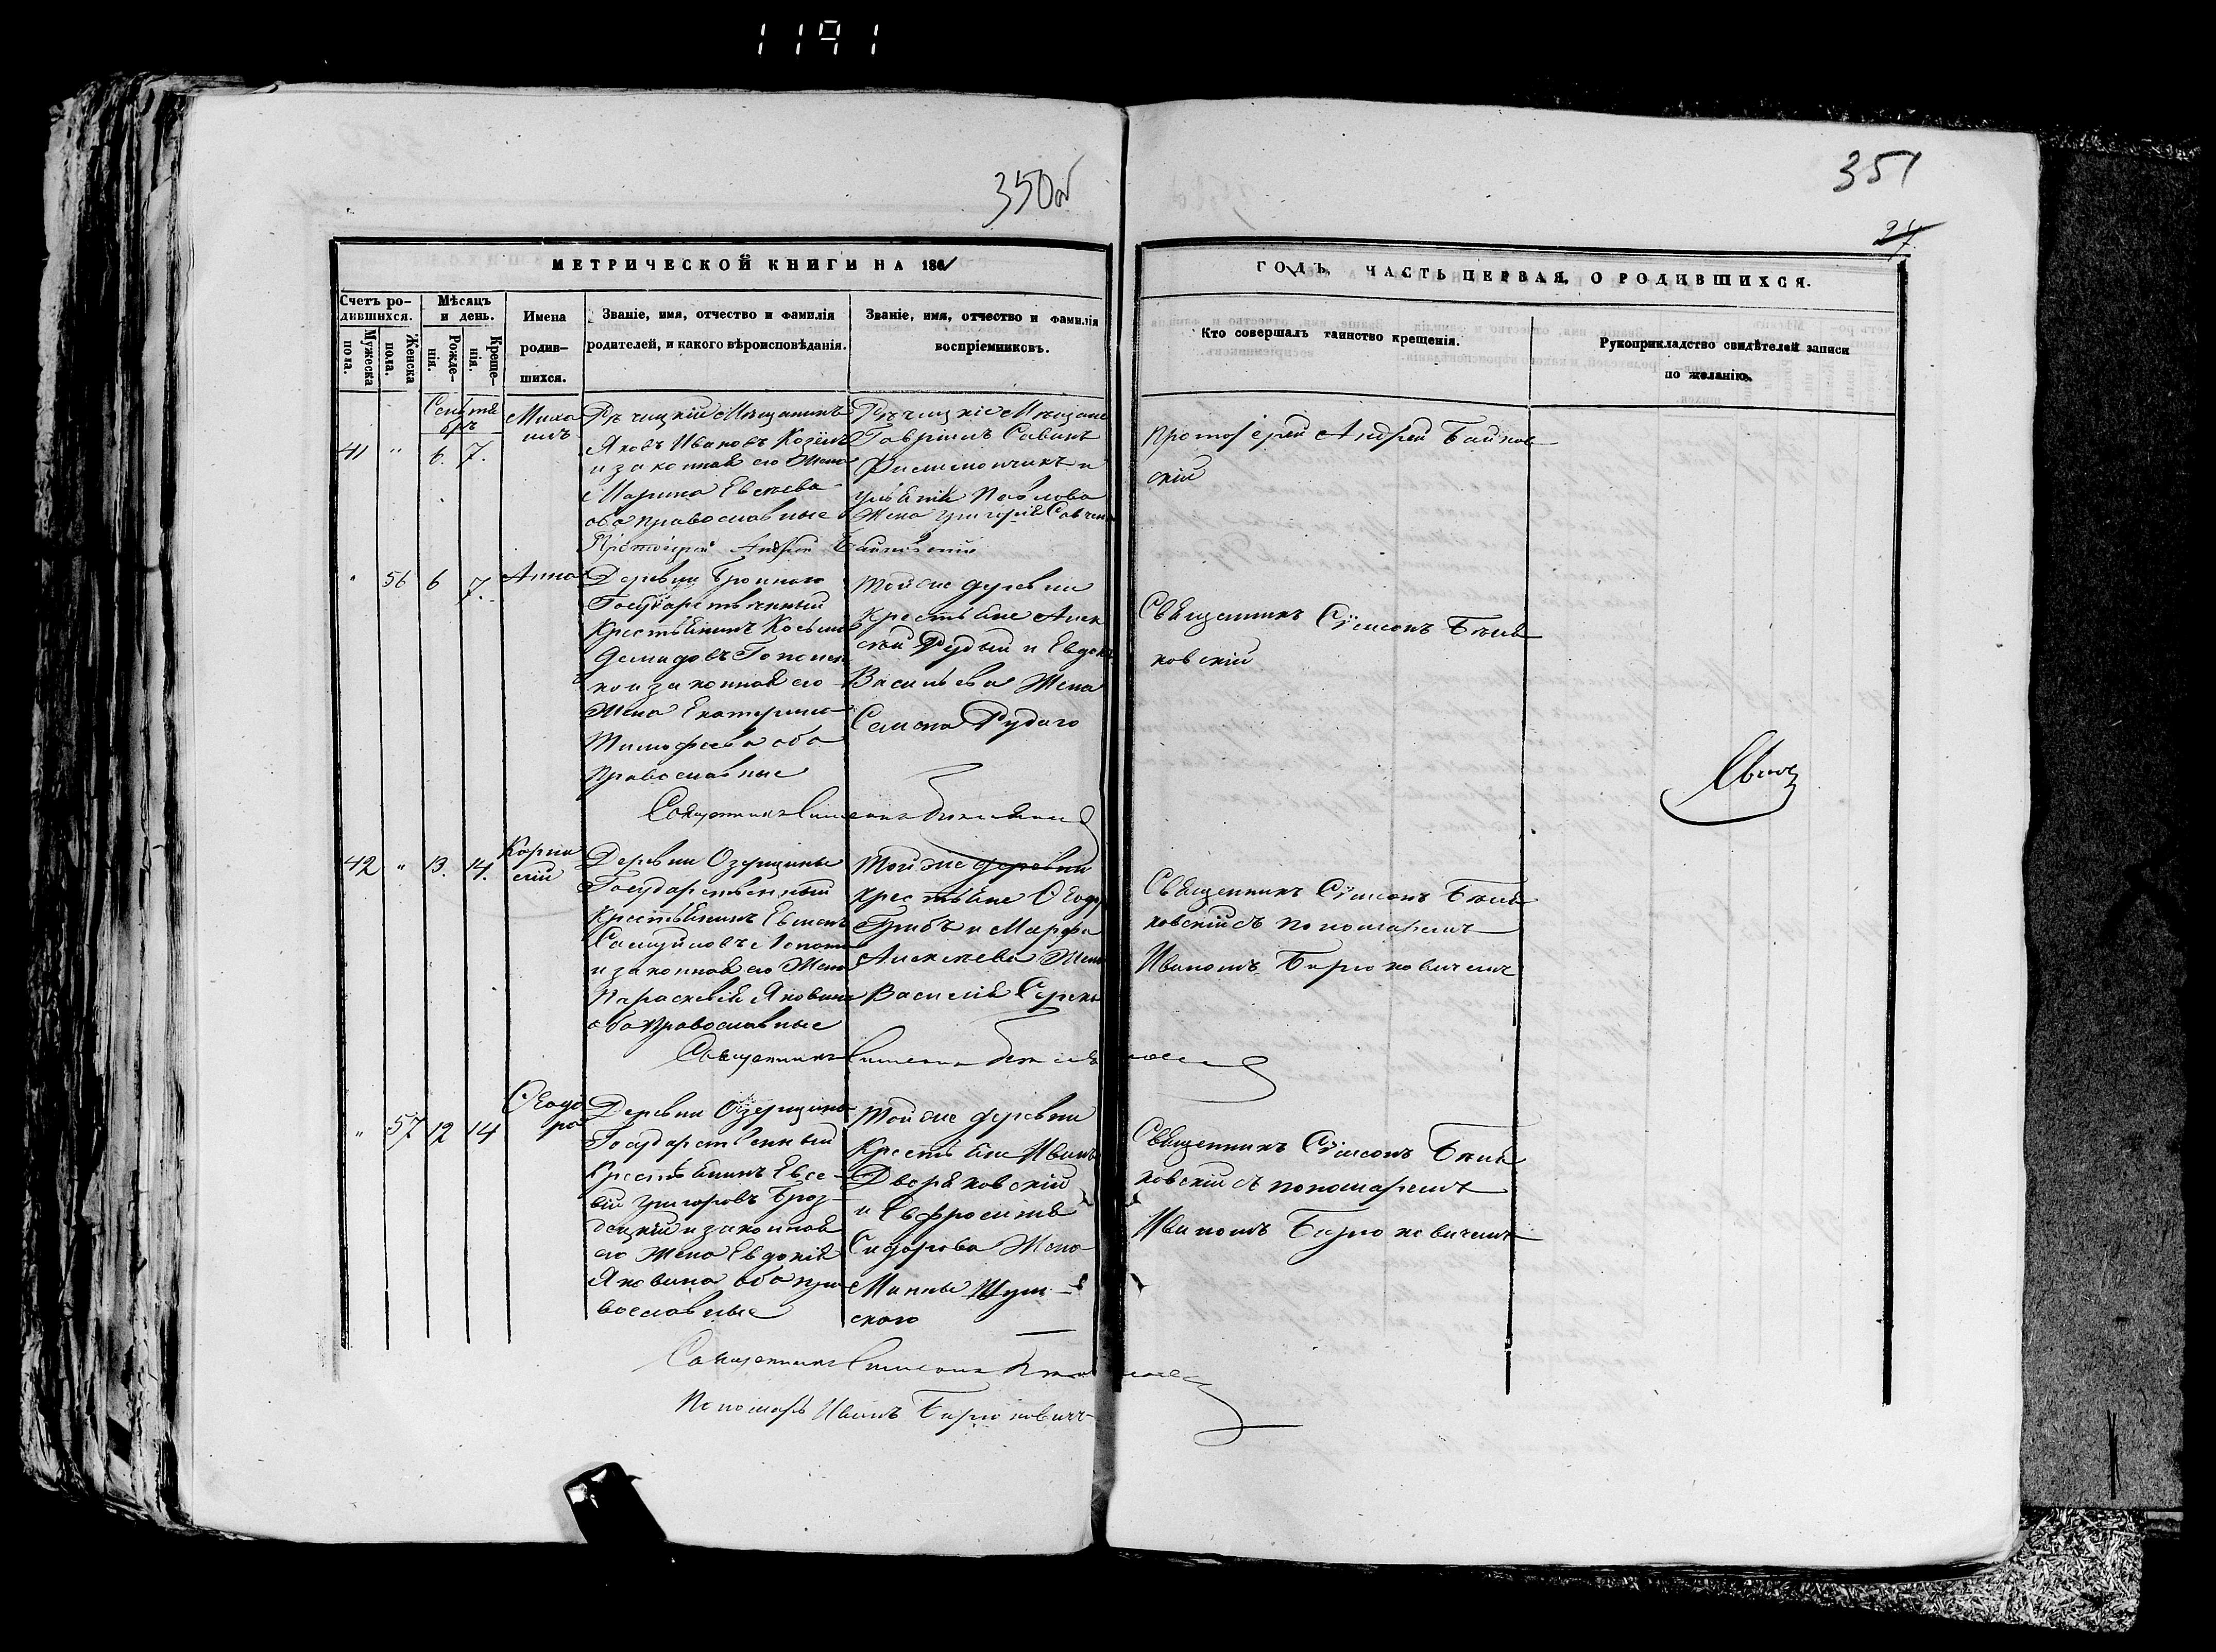 1191
350об
351
МЕТРИЧЕСКОЙ КНИГИ НА 1861
ГОДЪ, ЧАСТЬ ПЕРВАЯ, О РОДИВШИХСЯ.
Счетъ ро-
дившихся.
Мужеска
пола.
Женска
пола.
Мѣсяцъ
и день.
Рожде-
нія.
Креще-
нія.
Имена
родив-
шихся.
Званіе, имя, отчество и фамилія
родителей, и какого вѣроисповѣданія.
Званіе, имя, отчество и фамилія
воспріемниковъ.
Кто совершалъ таинство крещенія.
Рукоприкладство свидѣтелей записи
по желанію.
Сентя
брь
41 " 6. 7.
Миха
илъ
Рѣчицкій Мѣщанинъ
Яковъ Ивановъ Козелъ
и законная его Жена
Марина Евсѣева
оба православные
Рѣчицкіе Мѣщане
Гавріилъ Савинъ
и
Павлова
Жена Григорія Савчен
Протоіерей Андрей Байков
скій
Протоіерей Андрей
" 56 6 7.
Анна
Деревни Броннаго
Государственный
Крестьянинъ Косьма
Демидовъ Гопонен
ко и законная его
Жена Екатерина
Тимофеева оба
православные
Той же деревни
Крестьяне Алек
сѣй Рудый и Евдокі
Васильева Жена
Семена Рудаго
Священникъ Сѵмеонъ Бѣля
ковскій
Священникъ Симеонъ
42 " 13. 14.
Корни
лій
Деревни Озерщины
Государственный
Крестьянинъ Евменъ
Самуйловъ
и законная его Жена
Параскевія Яковина
оба православные
Той же деревни
крестьяне Ѳеодр
Грибъ и Марфа
Алексѣева Жена
Василія
Священникъ Сѵмеонъ Бѣля
ковскій съ пономаремъ
Иваномъ Бирюковичемъ
Священникъ Симеонъ
" 57 12 14
Ѳеодо
ра
Деревни Озерщины
Государственный
Крестьянинъ Евсе-
вій Григоровъ Броз-
децкій и законная
его Жена Евдокія
Яковина оба пра
вославные
Той же деревни
Крестьяне Иванъ
Дворяковскій
и Евфросинія
Сидорова Жена
Минны
скаго
Священникъ Сѵмеонъ Бѣля
ковскій съ пономаремъ
Иваномъ Бирюковичемъ
Священникъ Симеонъ
Пономарь Иванъ Бирюковичъ